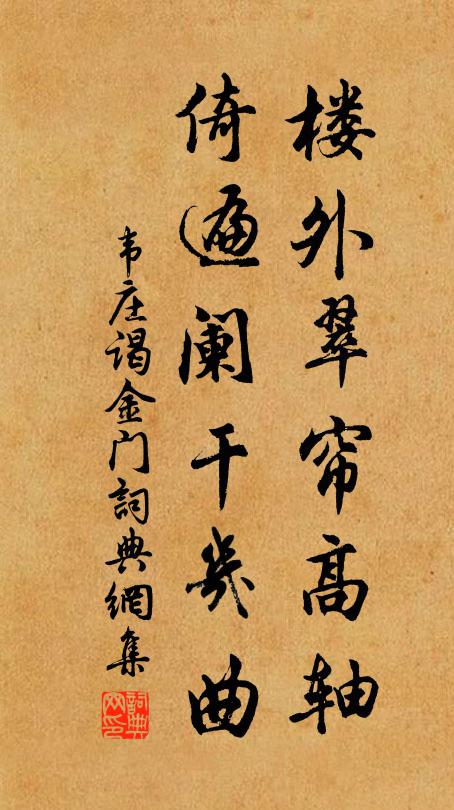 楼外翠帘高轴
倚遍阑干几曲
韦庄谒金门詞典網集
詞典网印